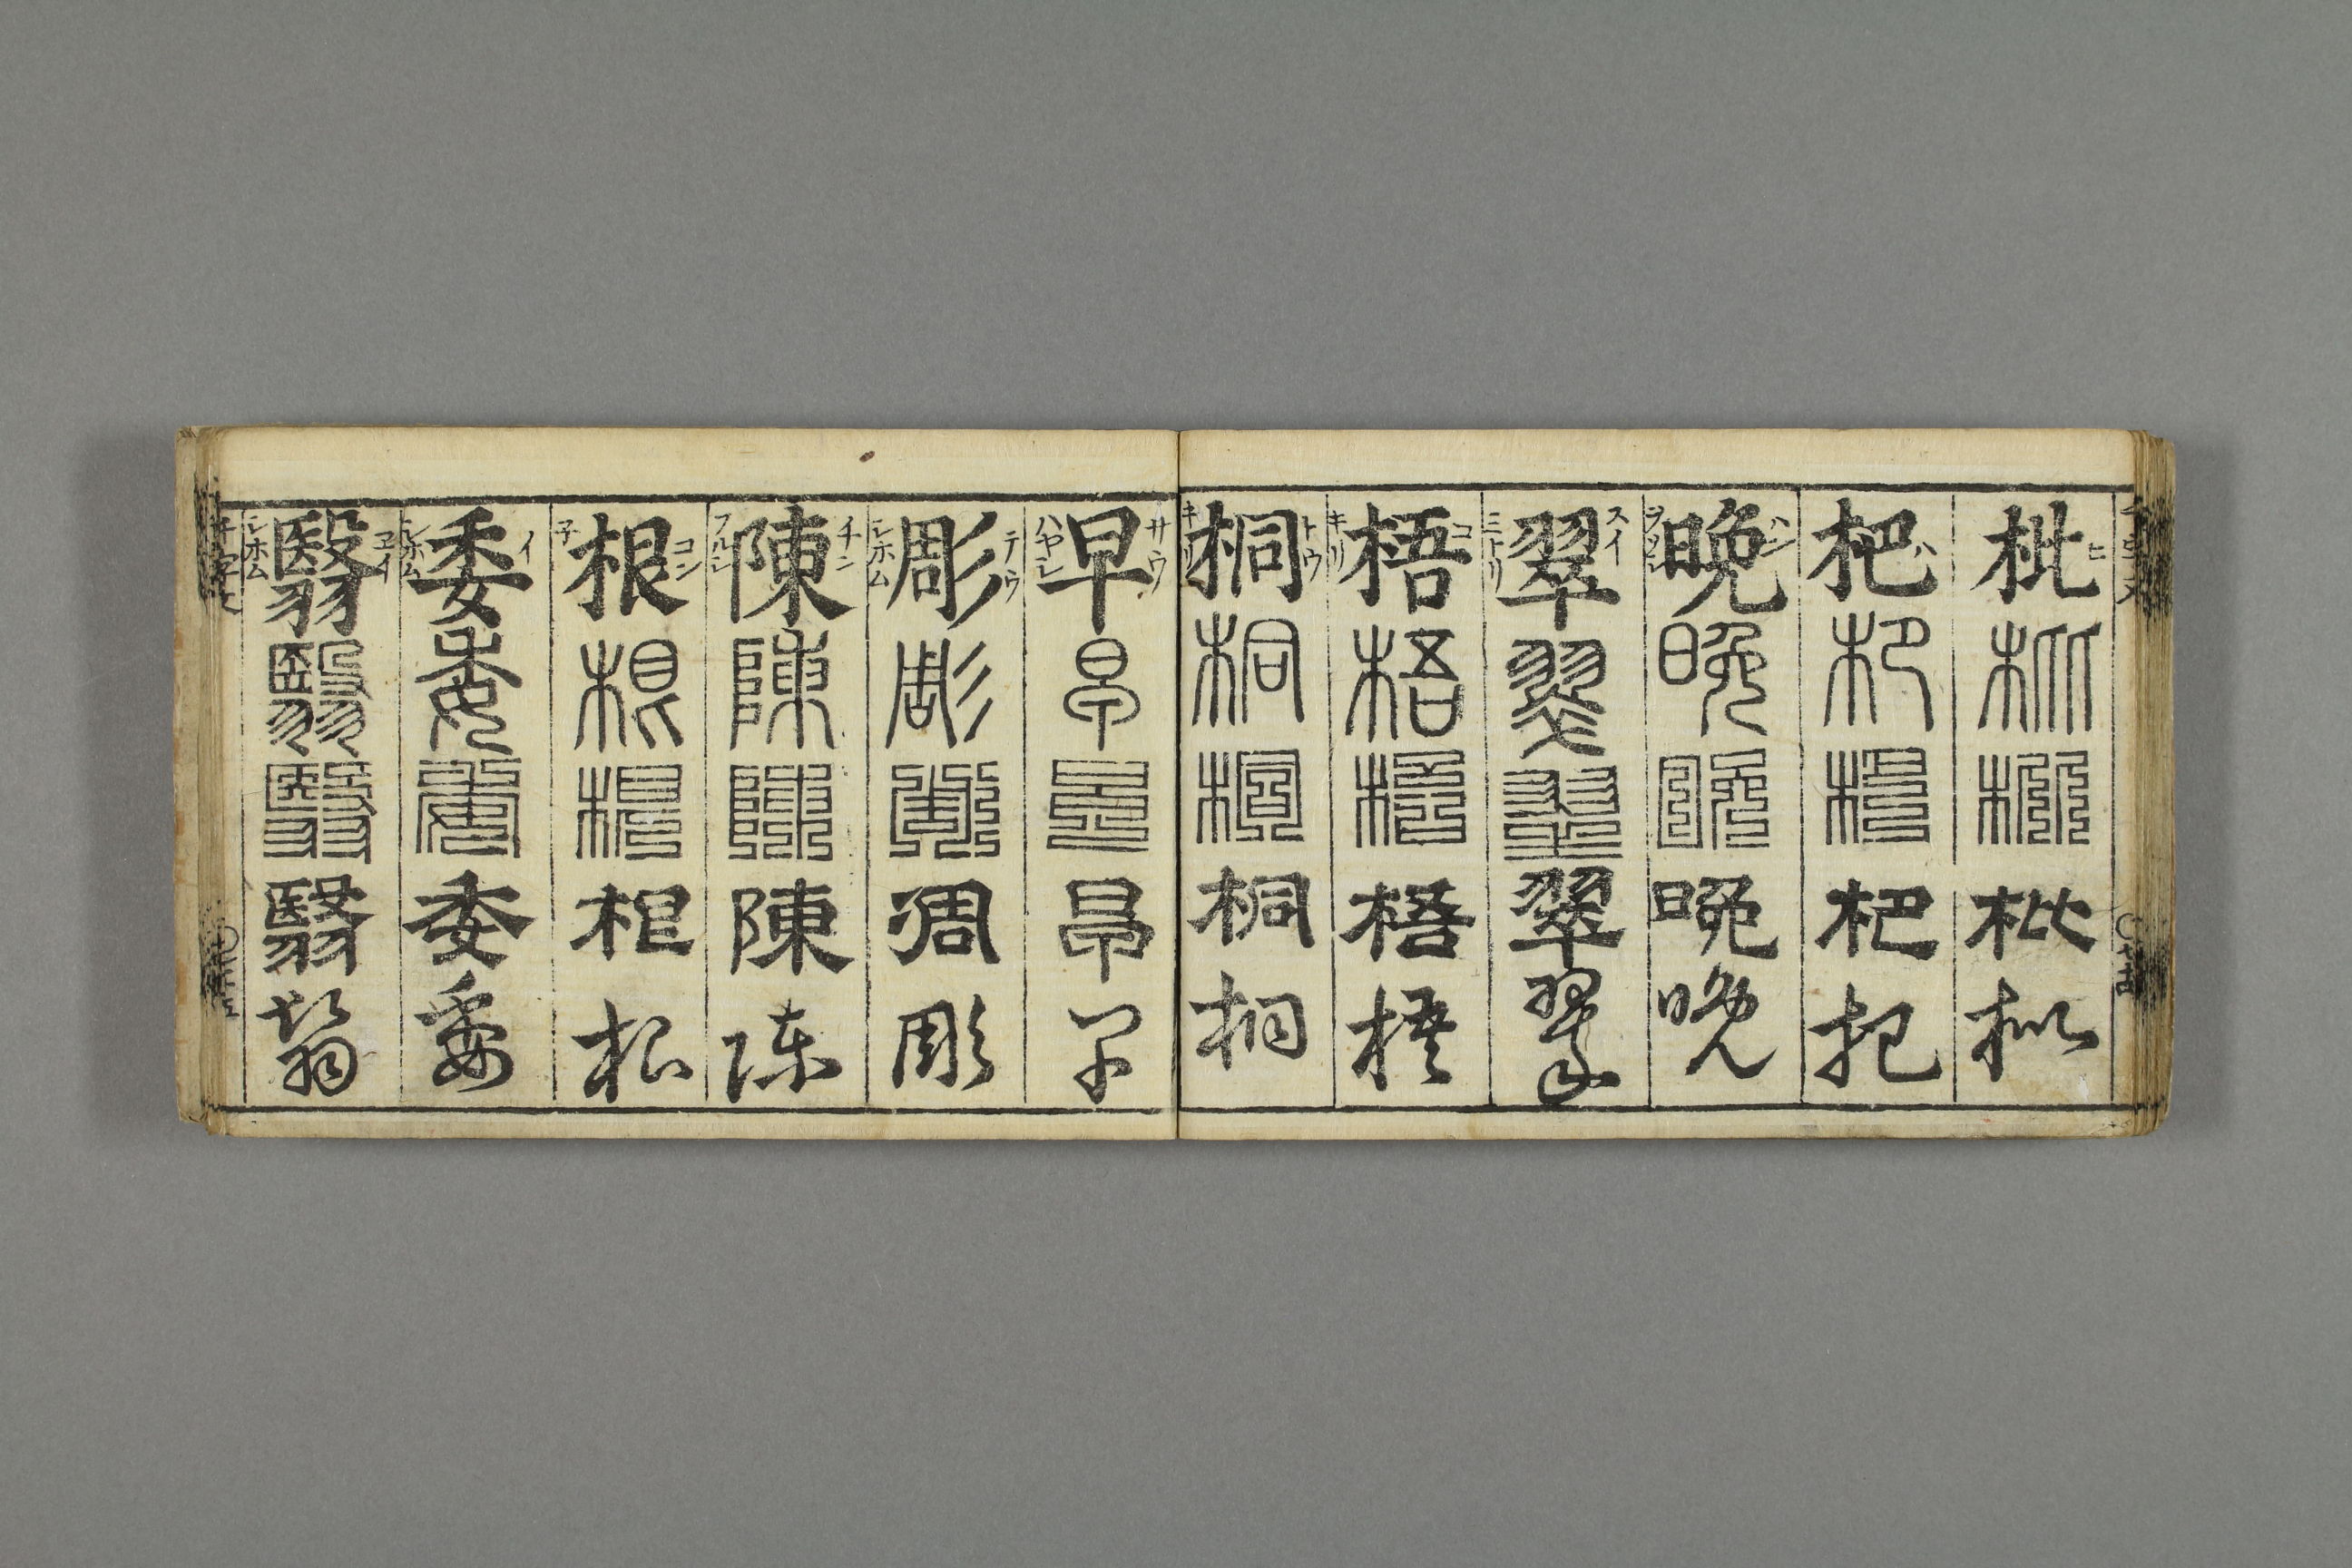 枇枇枇枇枇 ヒ
杷杷杷杷杷 ハ
晩晩晩晩晩 バン
翠翠翠翠翠 スイ ミトリ
梧梧梧梧梧 コ キリ
桐桐桐桐桐 トウ キリ
早早早早早 サウ ハヤシ
彫彫彫凋彫 テウ シホム
陳陳陳陳陳 チン フルシ
根根根根根 コン 子
委委委委委 イ シホム
翳翳翳翳翳 エイ シホム